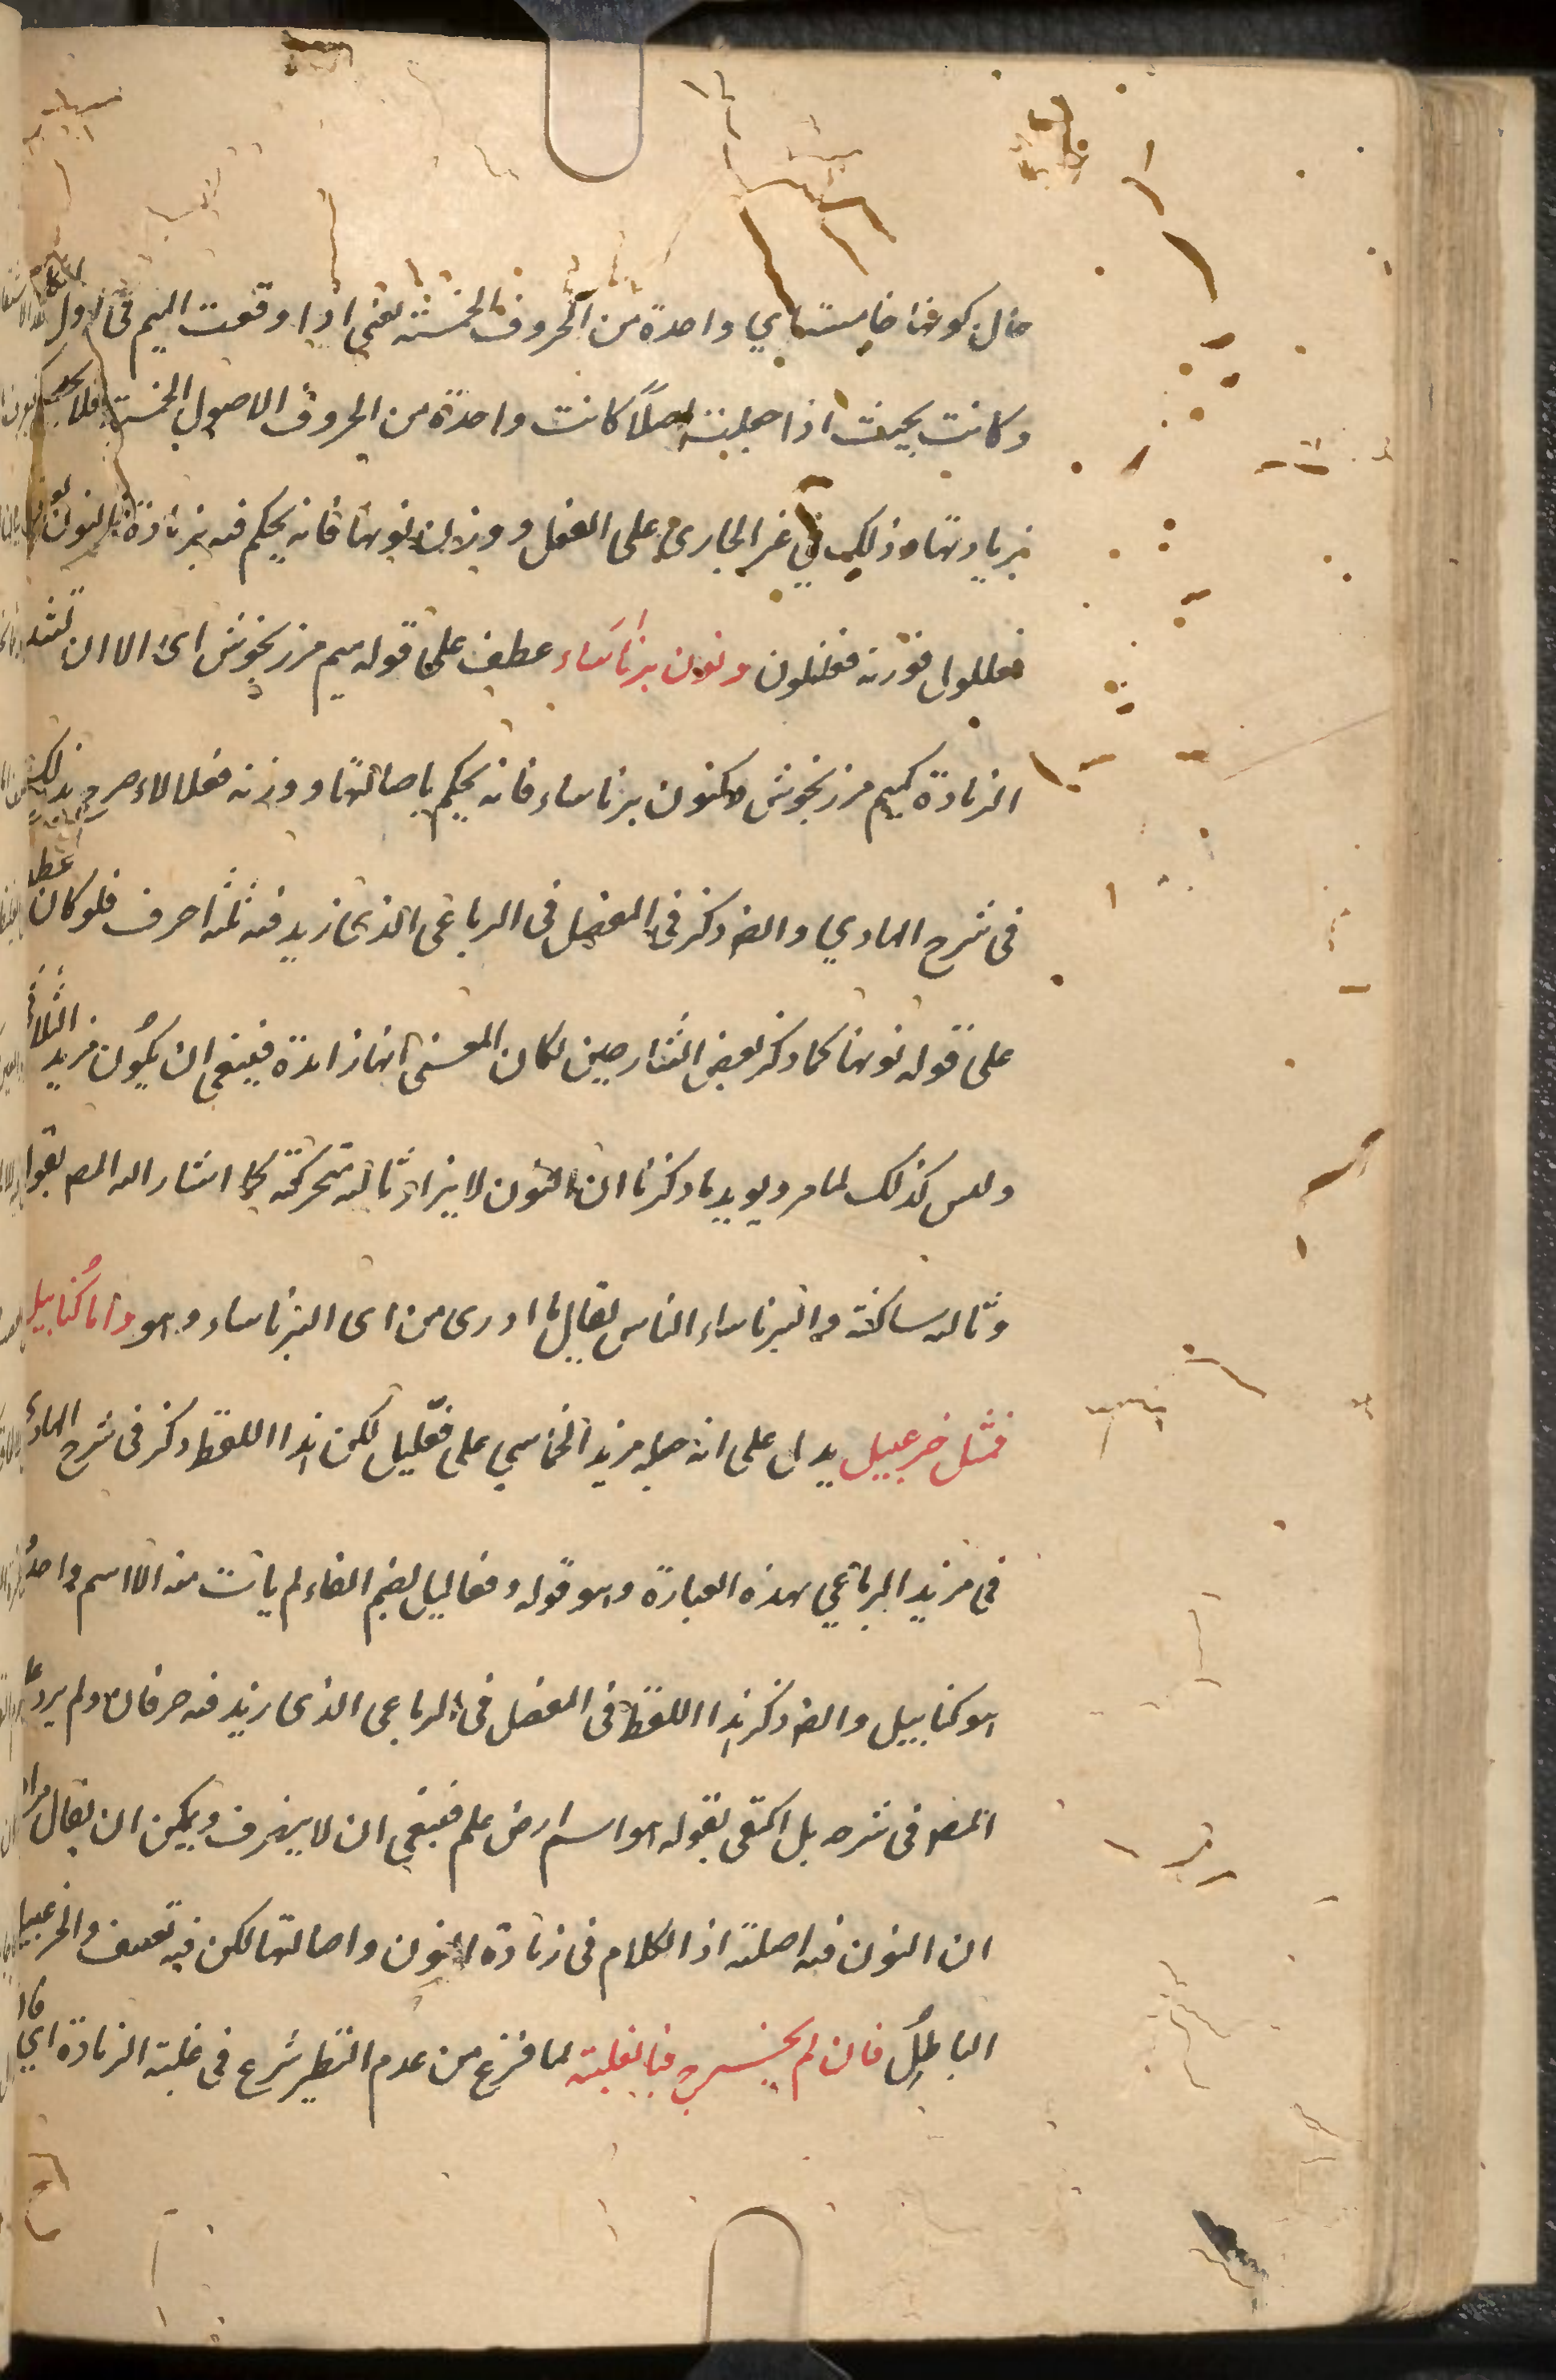 حال كونها خامسة اي واحدة من الحروف الخمسة يعني اذا وقعت الميم في الاول
وكانت بحيث اذا جعلت اصلًا كانت واحدة من الحروف الاصول الخمسة فلا يحكم
بزيادتها وذلك في غير الجاري على الفعل دون نونها فانه يحكم فيه بزيادة النون
فعللول فوزنه فعلنلول ونون برناساء عطف على قوله ميم مرزنجوش اي الا ان تشذ
الزيادة كميم مرزنجوش وكنون برناساء فانه يحكم باصالتها ووزنه فعلالاء صرح بذلك
في شرح الهادي والمص ذكر في المفصل في الرباعي الذي زيد فيه ثلثة احرف فلو كان عطفا
على قوله نونها كما ذكر بعض الشارحين لكان المعنى انها زائدة فينبغي ان يكون مزيد الثلاثي
وليس كذلك لما مر ويويد ما ذكرنا ان النون لا يزاد ثالثة متحركة كما اشار اليه المص بقوله
وثالثه ساكنة والبرناساء الناس يقال ما ادري من اي البرناساء هو واما كنابيل
فمثل خزعبيل يدل على انه جعله مزيد الخماسي على فعّليل لكن هذا اللفظ ذكر في شرح الهادي
في مزيد الرباعي بهذه العبارة وهو قوله وفعاليل بضم الفاء لم يات منه الا اسم واحدٌ
هو كنابيل والمص ذكر هذا اللفظ في المفصل في الرباعي الذي زيد فيه حرفان ولم يزد
المص في شرحه بل اكتفى بقوله هو اسم ارض علم فينبغي ان لا ينصرف ويمكن ان يقال
ان النون فيه اصلية اذ الكلام في زيادة النون واصالتها لكن فيه تعسف والخزعبيل
الباطلُ فان لم يخرج فبالغلبة لما فرغ من عدم النظير شرع في غلبة الزيادة اي